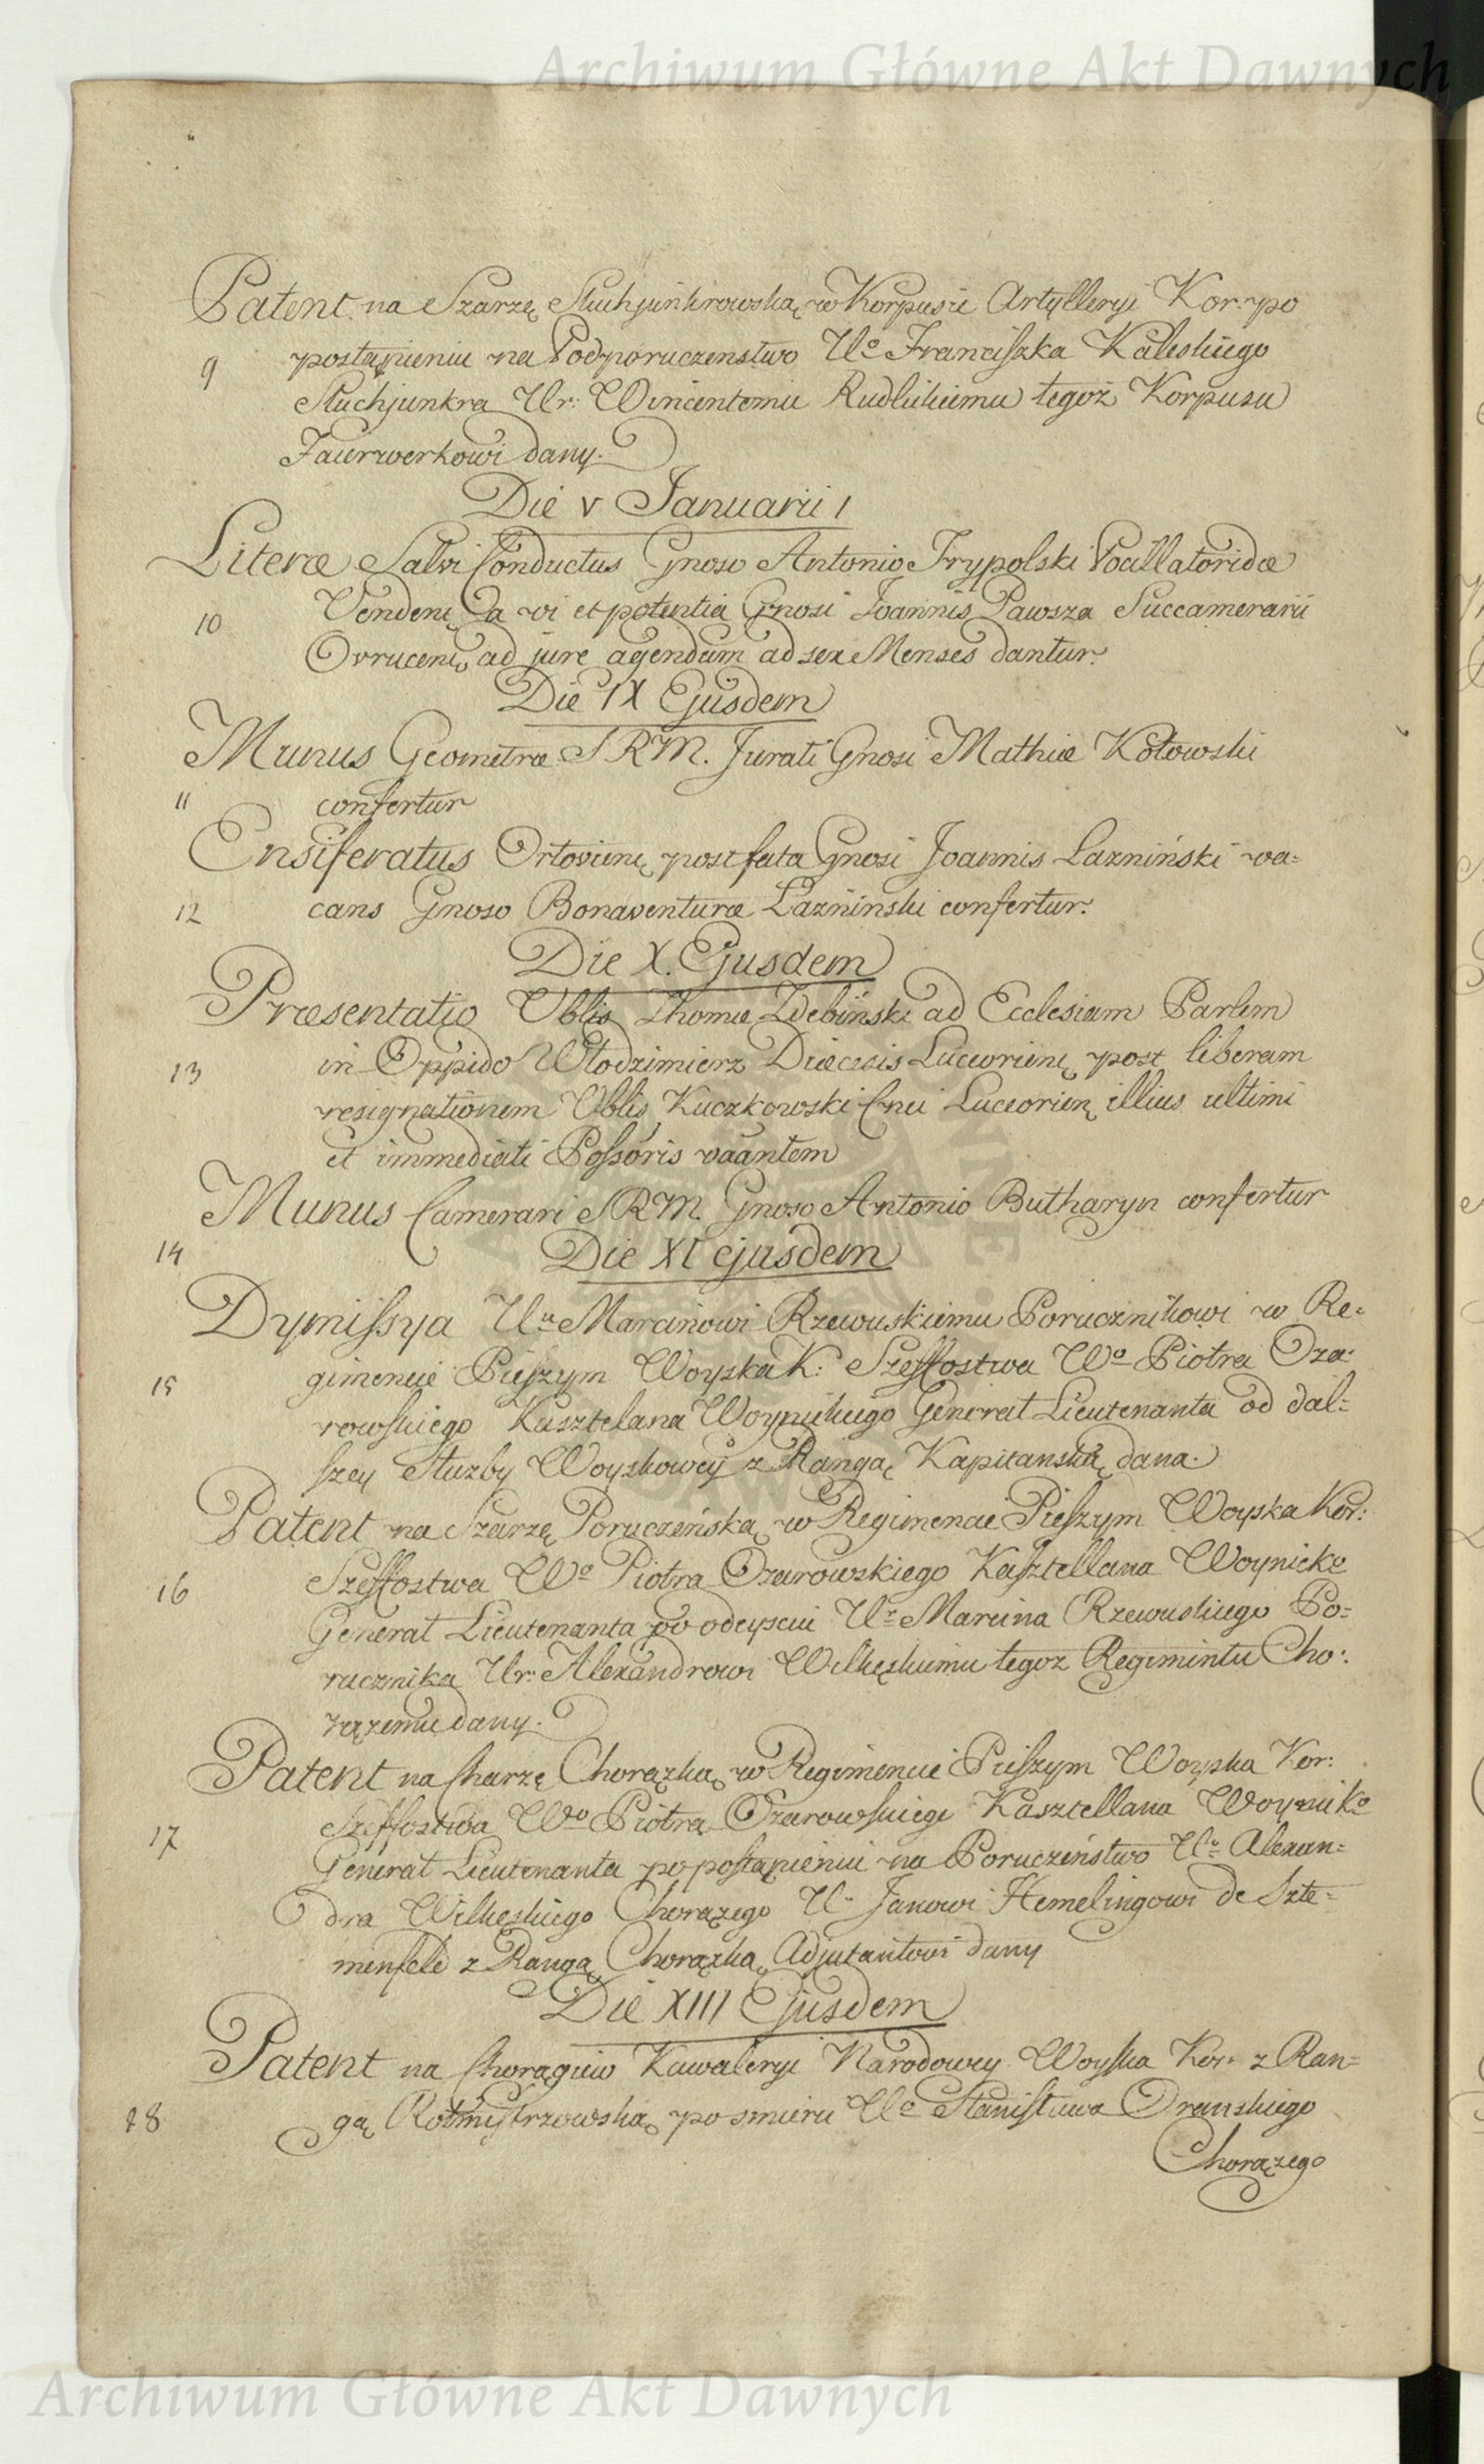 Archiwum Główne Akt Dawnych
Patent na Szarzę Sztuchjunkrowską w Korpusie Artylleryi Kor: po
9 postąpieniu na Podporuczenstwo Uo Franciszka Kaleskiego
Stuchjunkra Ur: Wincentemu Rudlickiemu tegoż Korpusu
Faierwerkowi dany.
Die V Januarii
Literæ Salvi Conductus Gnoso Antonio Trypolski Pocillatoridæ
10 Venden: a vi et potentia Gnosi Joannis Pawsza Succamerarii
Ovrucen: ad jure agendum ad sex Menses dantur.
Die IX Ejusdem
Munus Geometræ S R M. Jurati Gnosi Mathiæ Kotowski
11 confertur
Ensiferatus Orłovien: post fata Gnosi Joannis Lazniński va=
12 cans Gnoso Bonaventuræ Lazninski confertur.
Die X. Ejusdem
Præsentatio Vblis Thomæ Zdebiński ad Ecclesiam Parlem
13 in Oppido Włodzimierz Diæcesis Luceorien: post liberam
resignationem Vblis Kuczkowski Cnci Luceorien: illius ultimi
et immediati Possoris vaantem
Munus Camerari S R M. Gnoso Antonio Butharyn confertur
14 Die XI ejusdem
Dymissya Uru Marcinowi Rzewuskiemu Porucznikowi w Re=
15 gimencie Pieszym Woyska K: Szeffostwa Wo Piotra Oża=
rowskiego Kasztelana Woynickiego Generał Lieutenanta od dal=
szey Służby Woyskowey z Rangą Kapitanską dana.
Patent na Szarzę Poruczeńską w Regimencie Pieszym Woyska Kor:
16 Szeffostwa Wo Piotra Ożarowskiego Kasztellana Woynicko
Generał Lieutenanta po odeysciu Ur Marcina Rzewuskiego Po=
rucznika Ur: Alexandrowi Wilkęskiemu tegoż Regimintu Cho:
rążemu dany.
Patent na Charzę Chorążką w Regimencie Pieszym Woyska Kor:
17 Szeffostwa Wo Piotra Ożarowskiego Kasztellana Woyniko
Generał Lieutenanta po postąpieniu na Poruczeństwo Uo Alexan=
dra Wilkęskiego Chorążego U Janowi Hemelingowi de Szte=
menfeld z Rangą Chorążką Adjutantowi dany
Die XIII Ejusdem
Patent na Chorągiew Kawaleryi Narodowey Woyska Kor: z Ran=
18 gą Rotmistrzowską po smierci Uo Stanisława Dranskiego
Chorążego
Archiwum Główne Akt Dawnych